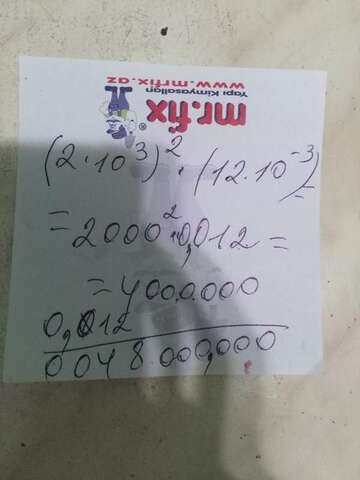 www.mrfix.az
Yapı Kimyasalları
mr.fix
®
(2·10³)²·(12·10⁻³)=
=2000²·0,012=
=4000.000
0,012
0048.000,000